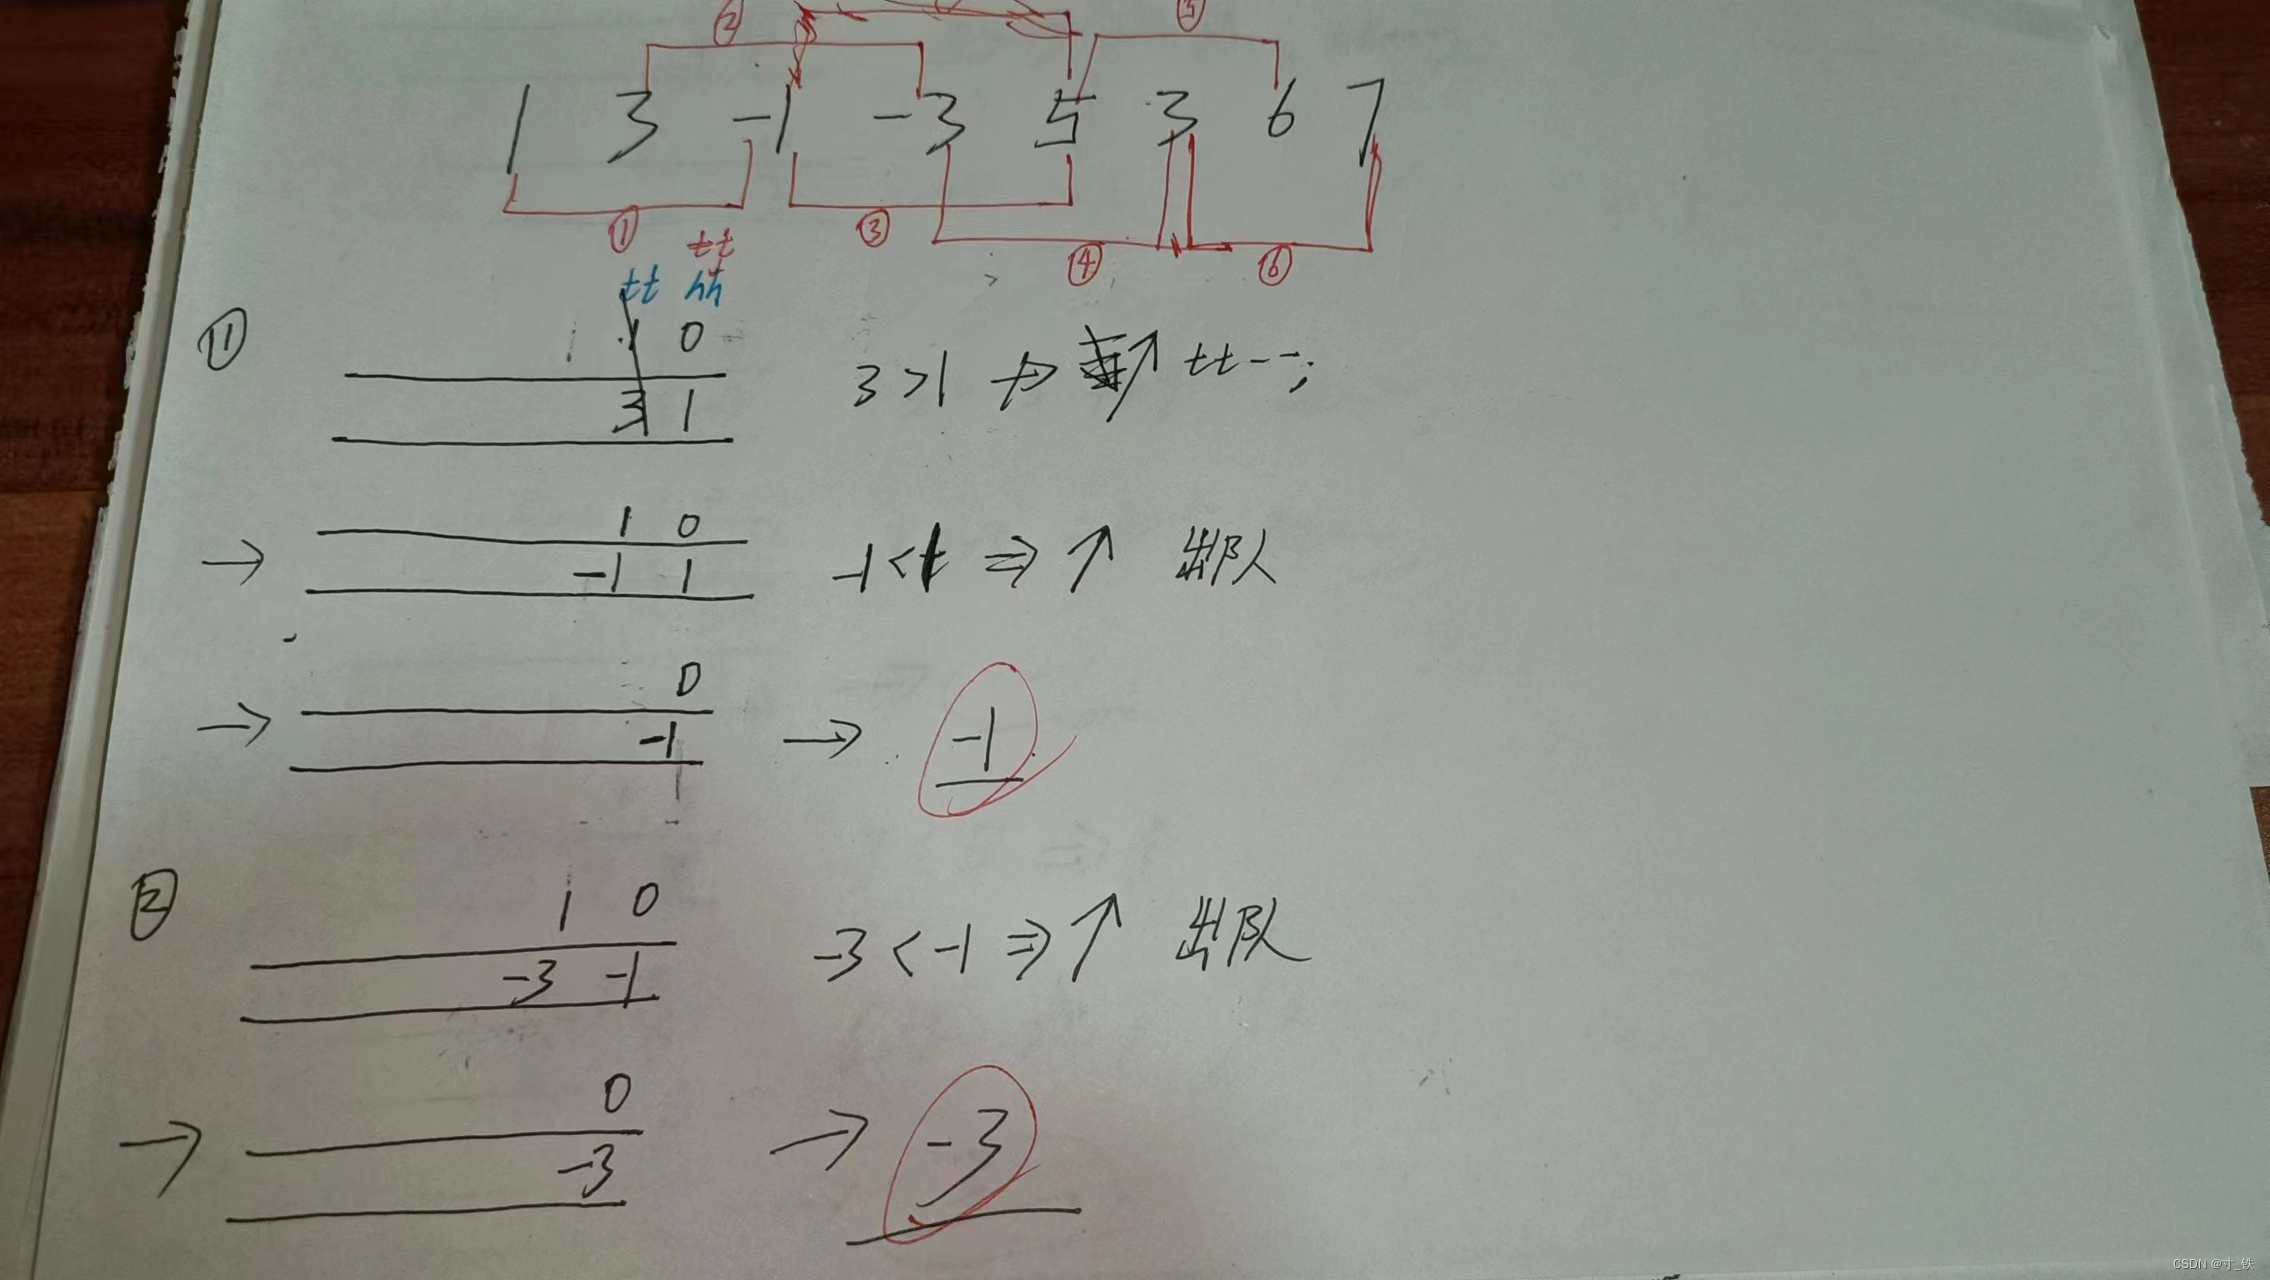 ② ⑤
1 3 -1 -3 5 3 6 7
① ③ ④ ⑥
tt
tt hh
① 1 0
3 1
3 > 1 ↗ tt--;
1 0
→ -1 1
-1 < 1 ⇒ ↗ 出队
0
→ -1 → -1
② 1 0
-3 -1
-3 < -1 ⇒ ↗ 出队
0
→ -3 → -3
CSDN @寸_铁